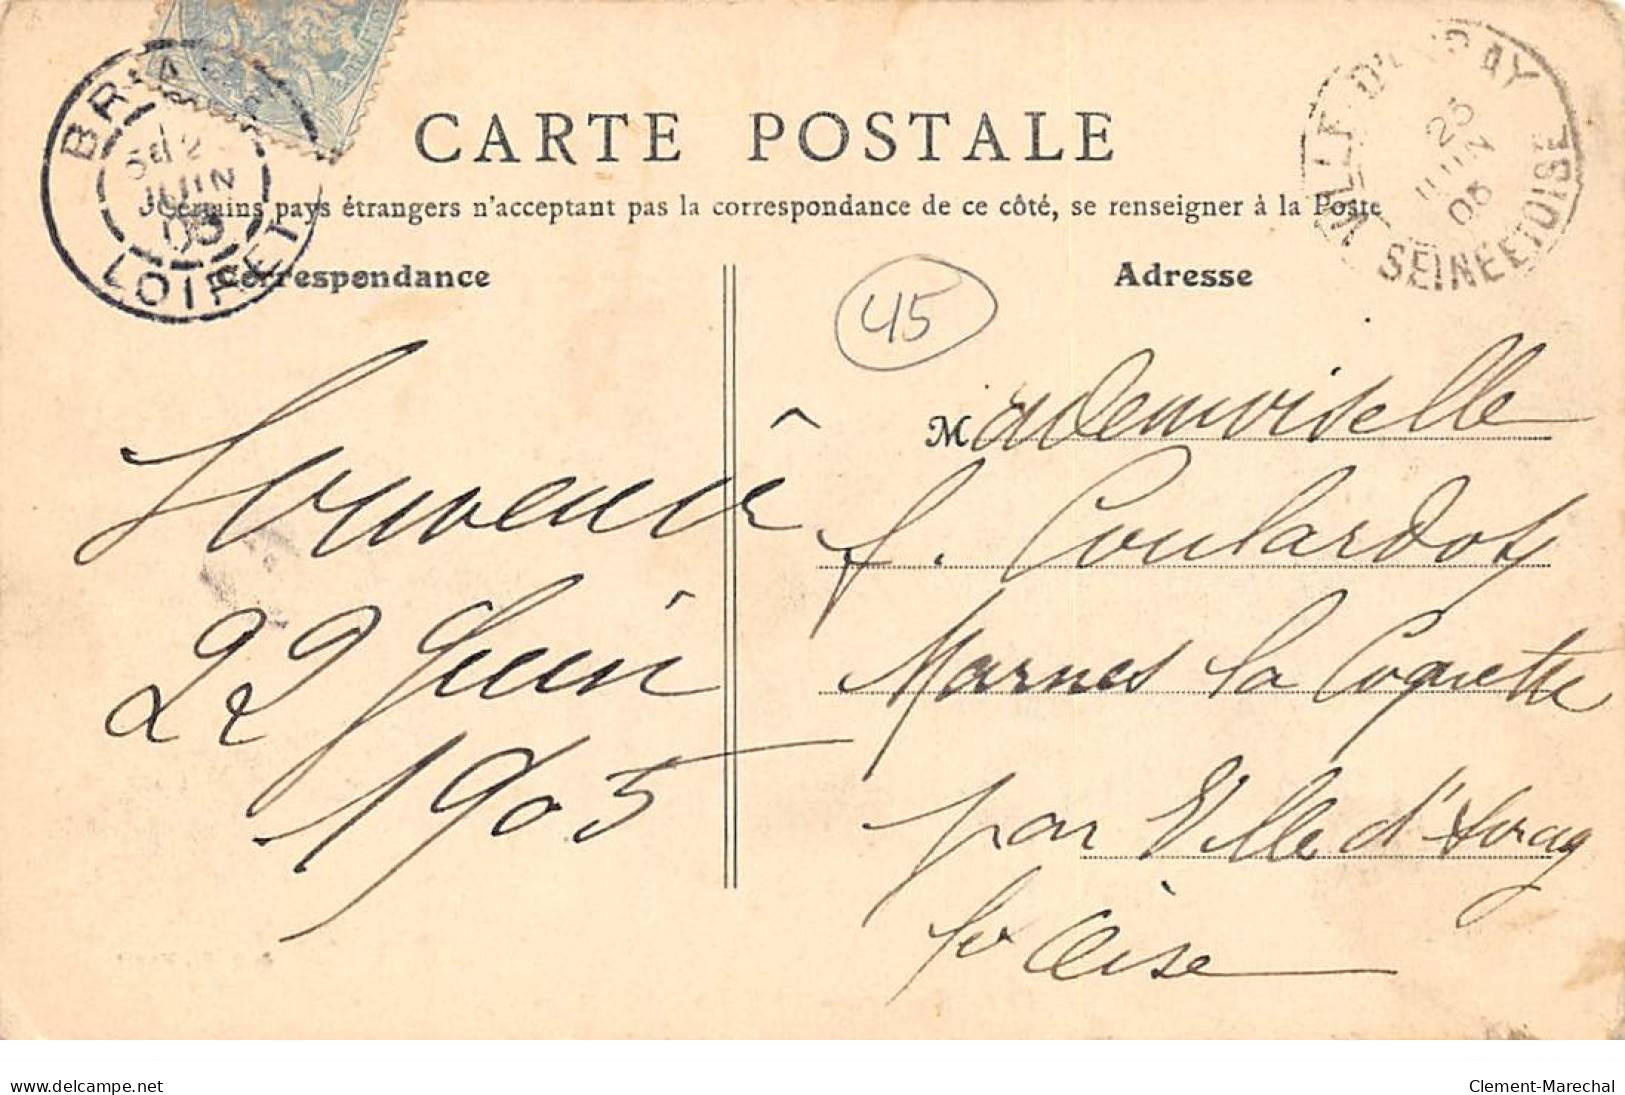 CARTE POSTALE
Certains pays étrangers n'acceptent pas la correspondance de ce côté, se renseigner à la Poste
BRIARE
JUIN
05
LOIRET
VILLE D'AVRAY
25
JUIN
05
SEINE ET OISE
Correspondance
Adresse
45
Souvenir
22 Juin
1905
Mademoiselle
f. Coulardot
Marnes la Coquette
par Ville d'Avray
Oise
delcampe.net
Clement-Marechal